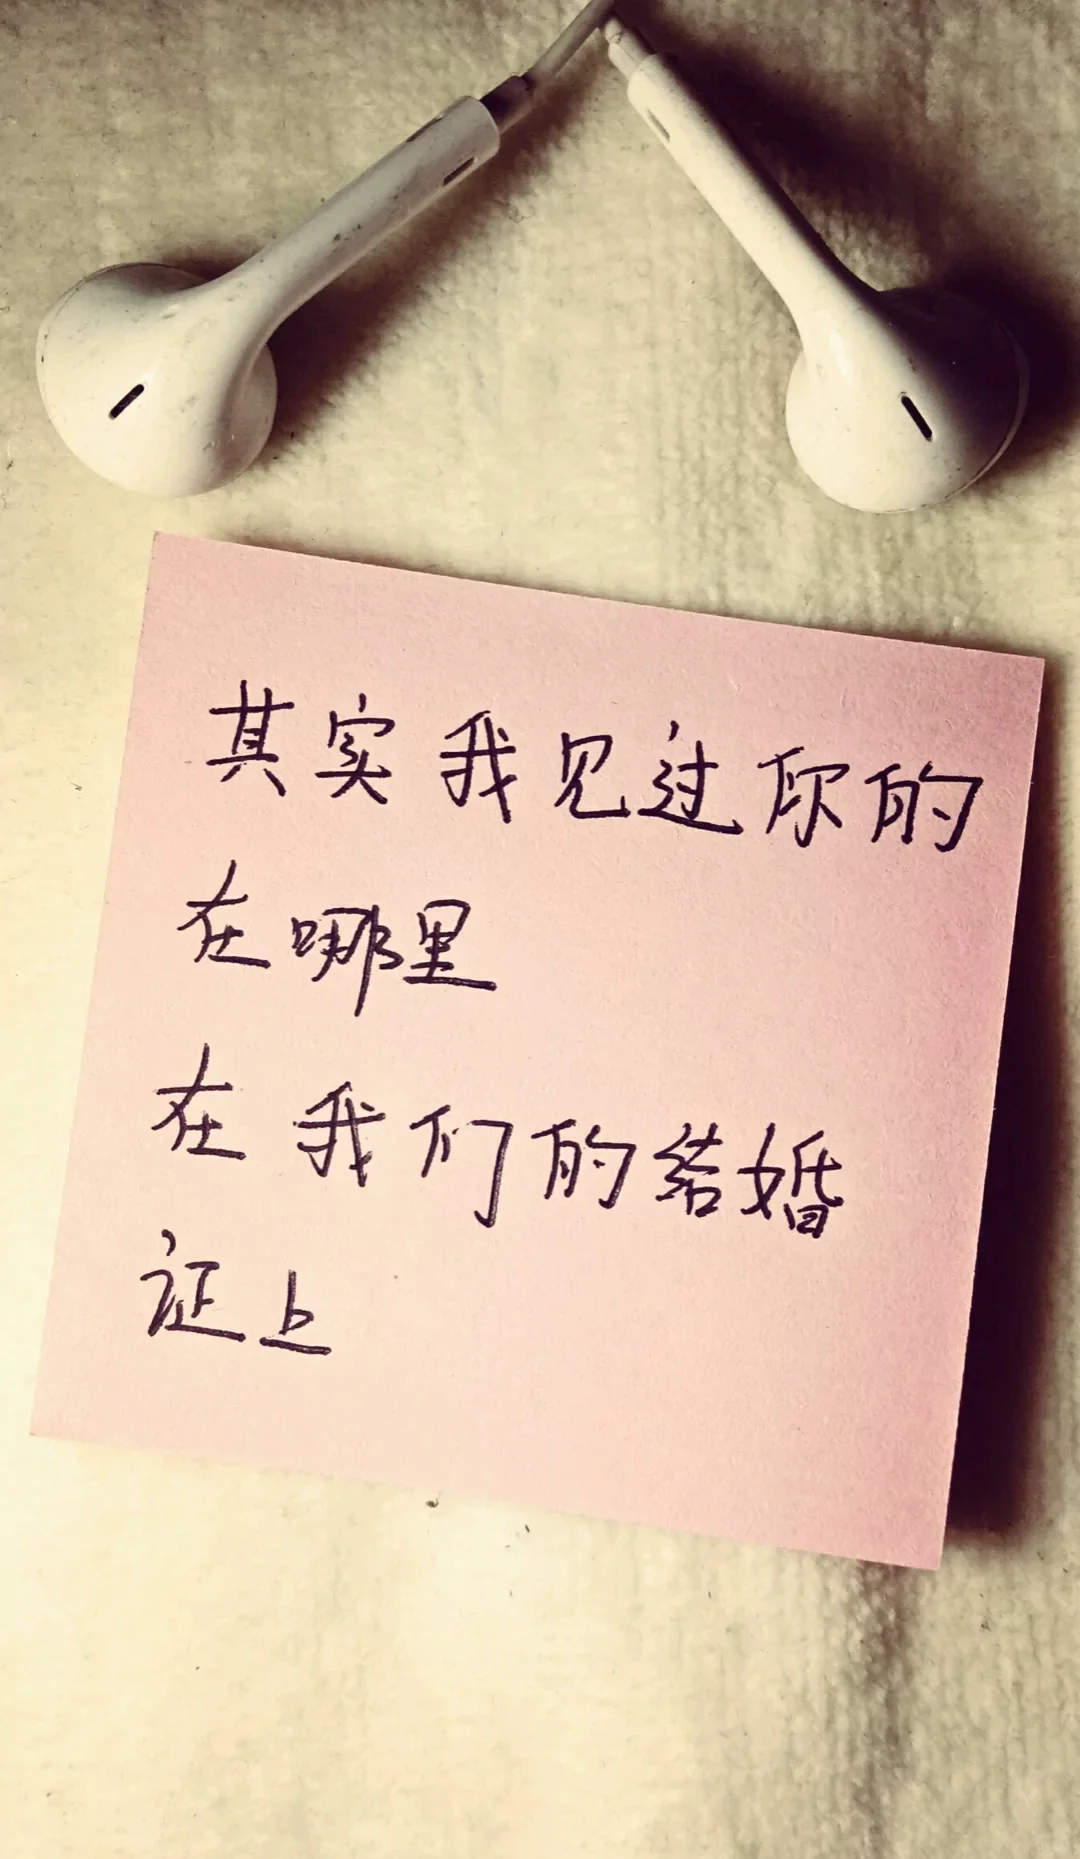 其实我见过你的
在哪里
在我们的结婚
证上